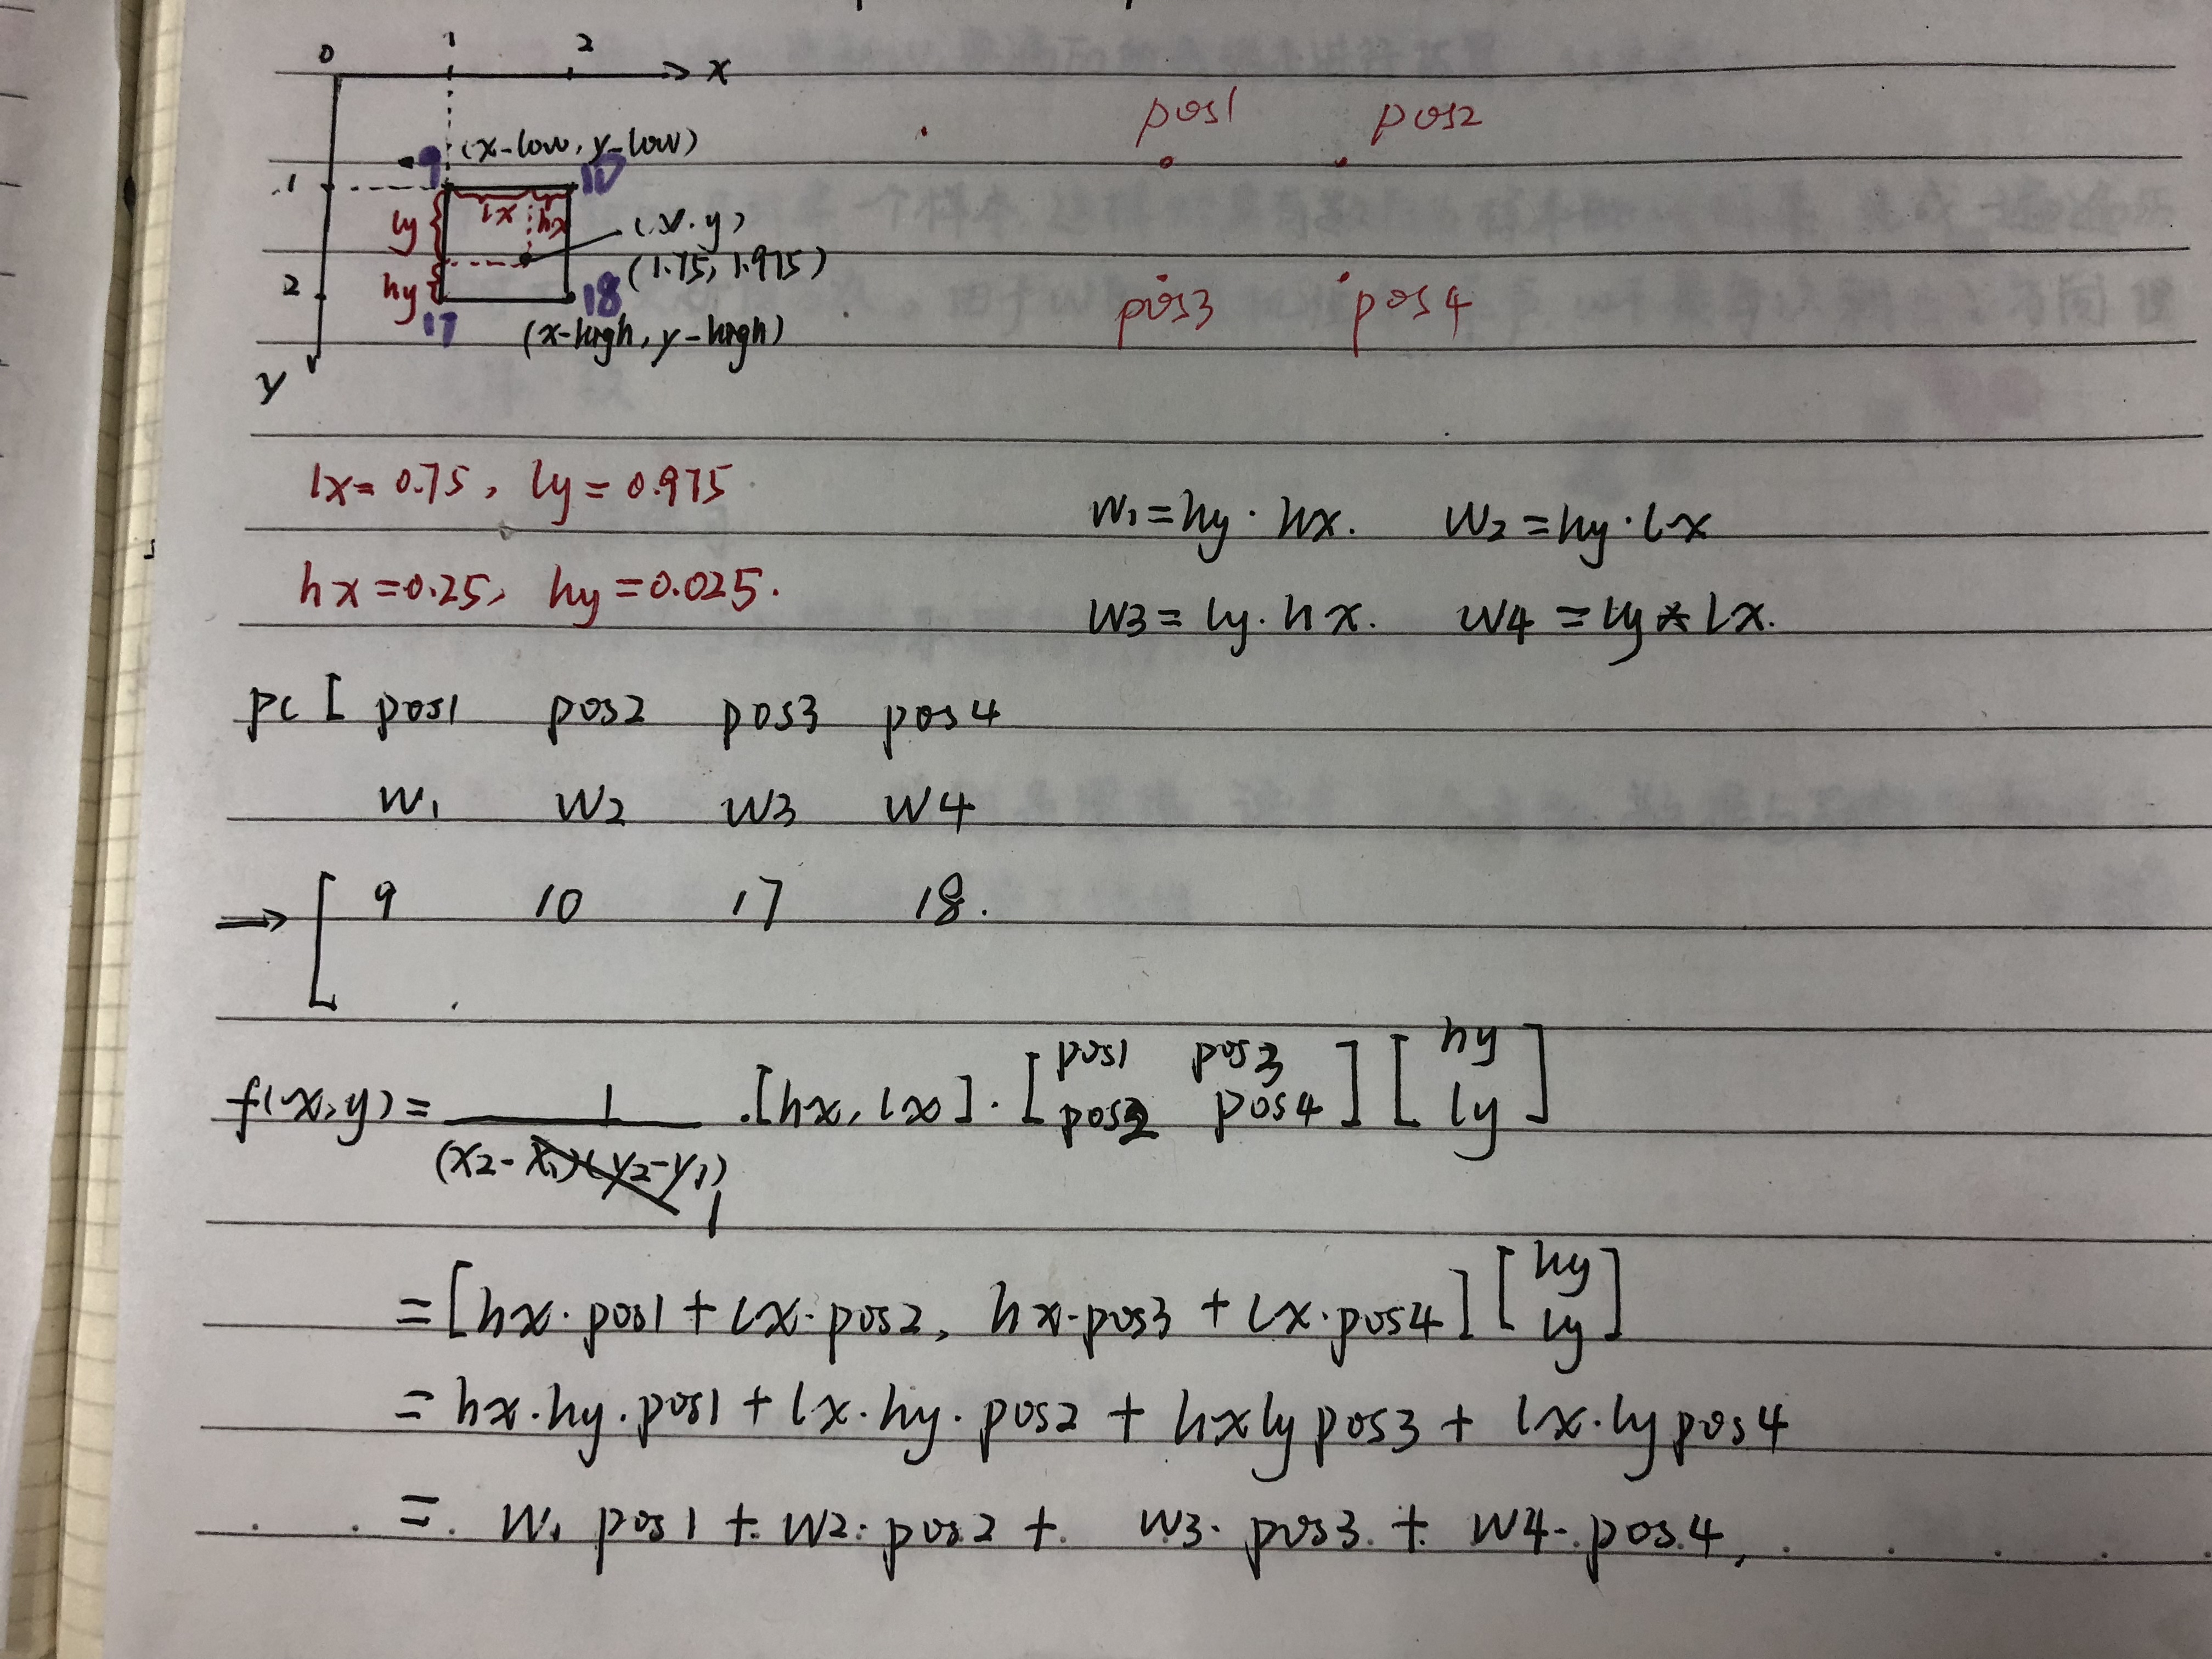 0 1 2 → x
pos1 pos2
9 (x-low, y-low)
1 10
lx hx
ly
(x.y)
(1.75, 1.975)
hy
2
17 18
(x-high, y-high)
pos3 pos4
y
lx = 0.75, ly = 0.975 w1 = hy·hx. w2 = hy·lx
hx = 0.25, hy = 0.025. w3 = ly·hx. w4 = ly*lx.
pc[ pos1 pos2 pos3 pos4
w1 w2 w3 w4
→ [ 9 10 17 18.
f(x,y) = 1 / (x2-x1)(y2-y1) · [hx, lx] · [pos1 pos3 pos2 pos4] [hy ly]
= [hx·pos1 + lx·pos2, hx·pos3 + lx·pos4] [hy ly]
= hx·hy·pos1 + lx·hy·pos2 + hxlypos3 + lx·lypos4
= w1 pos1 + w2·pos2 + w3·pos3 + w4·pos4,